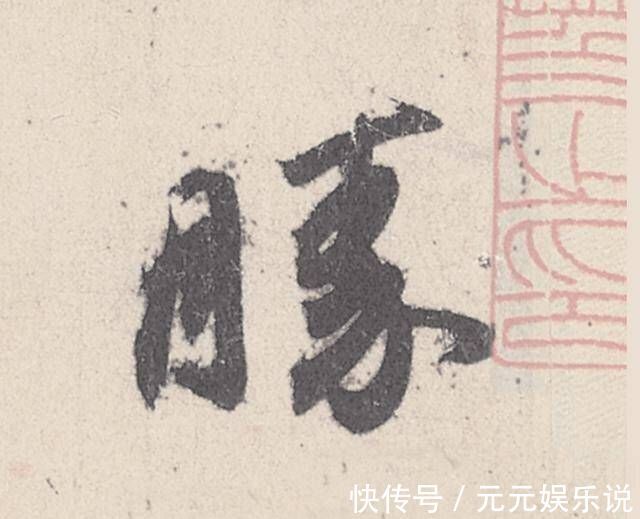 勝
快传号／元元娱乐说